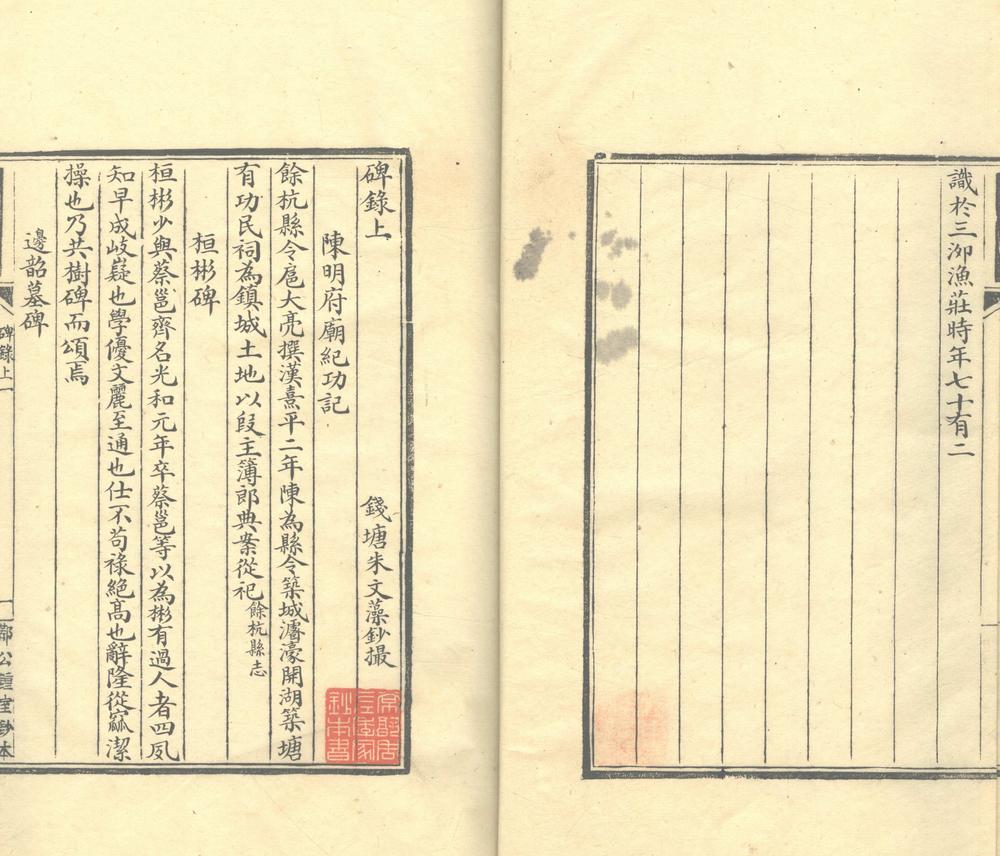 識於三泖漁莊時年七十有二
碑錄上
錢塘朱文藻鈔撮
陳明府廟紀功記
餘杭縣令扈大亮撰漢熹平二年陳為縣令築城濬濠開湖築塘
有功民祠為鎮城土地以段主簿郎典案從祀餘杭縣志
桓彬碑
桓彬少與蔡邕齊名光和元年卒蔡邕等以為彬有過人者四夙
知早成岐嶷也學優文麗至通也仕不苟祿絶髙也辭隆從窳潔
操也乃共樹碑而頌焉
邊韶墓碑
碑錄上
公鍾室鈔本